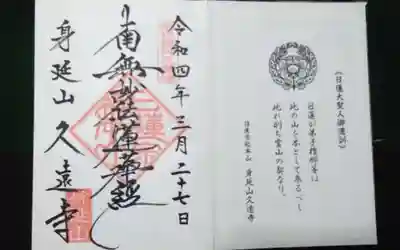 (日蓮大聖人御遺訓)
日蓮が弟子檀那等は
此の山を本として参るべし
此れ則ち霊山の契なり。
日蓮宗総本山 身延山久遠寺
令和四年三月二十七日
南無妙法蓮華経
身延山久遠寺